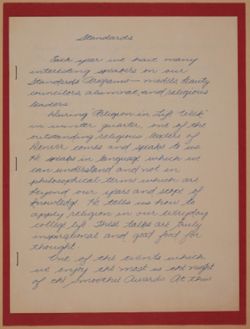 Standards
Each year we have many
interesting speakers on our
Standards Programs — models, beauty
councilors, alumnae, and religious
leaders.
During "Religion in Life Week"
in winter quarter, one of the
outstanding religious leaders of
Denver comes and speaks to us.
He speaks in language which we
can understand and not in
philosophical terms which are
beyond our years and scope of
knowledge. He tells us how to
apply religion in our everyday
college life. These talks are truly
inspirational and good food for
thought.
One of the events which
we enjoy the most is the night
of the Smoothie Awards. At this